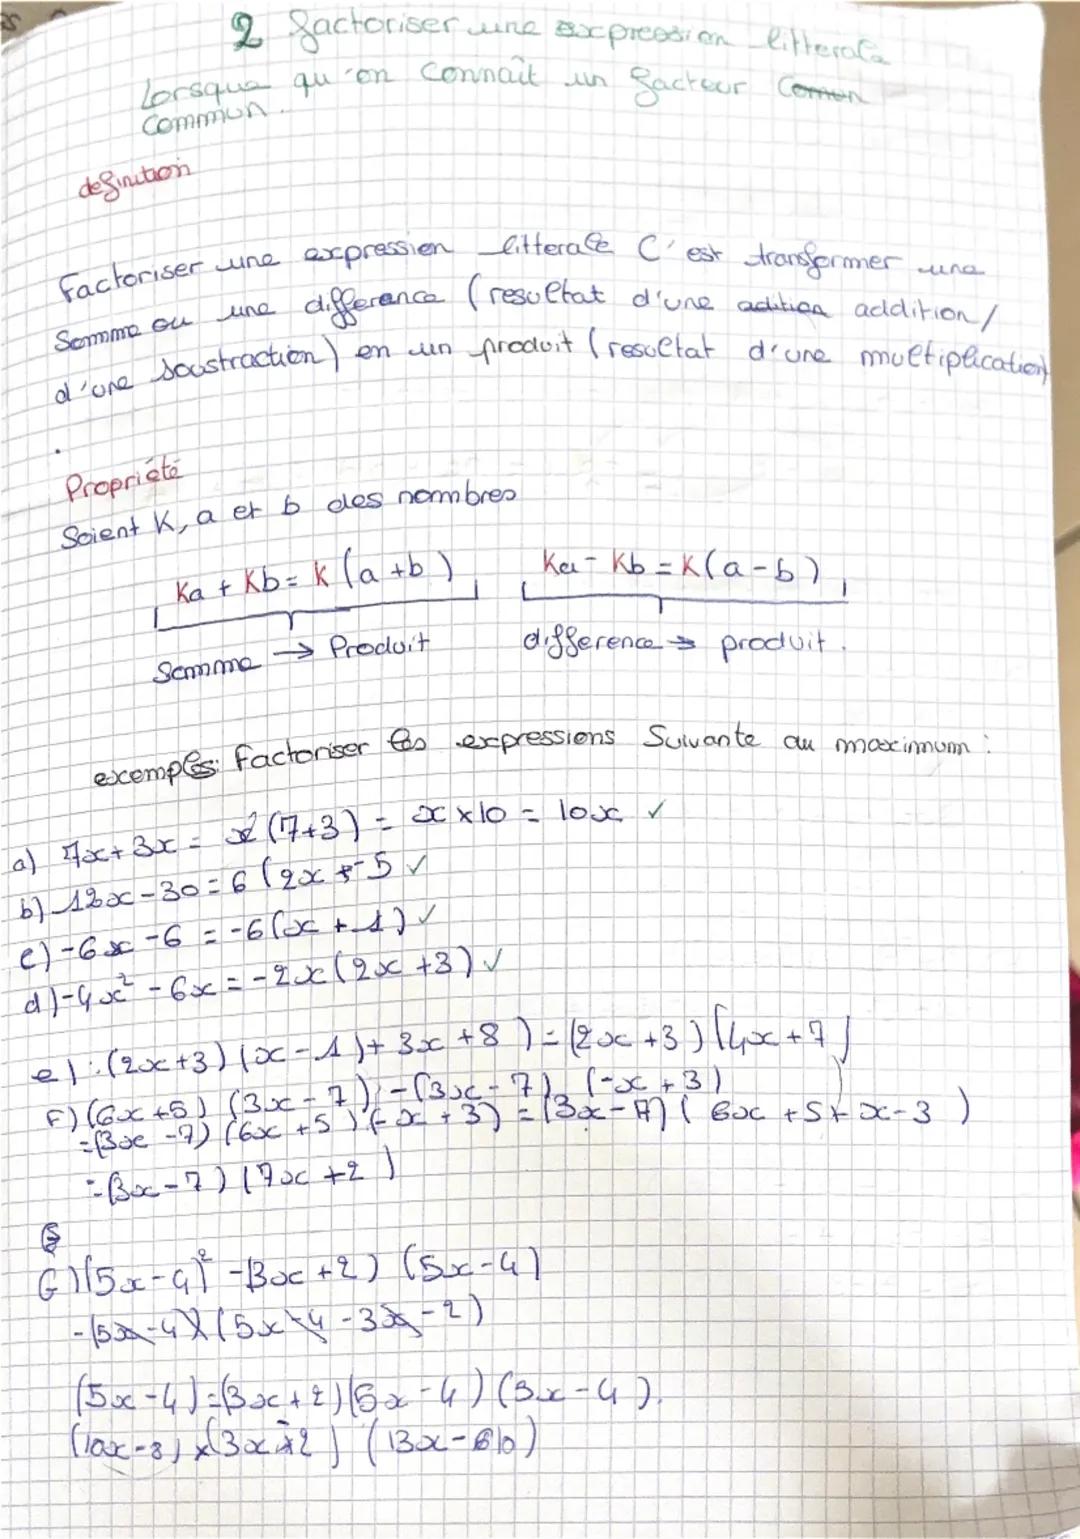 2 factoriser une expression litterale
Lorsque qu'on connaît un facteur Comon
commun.
definition
Factoriser une expression litterale C'est transformer une
Somme ou une difference (resultat d'une adition addition/
d'une soustraction) en un produit (resultat d'une multiplication)
.
Propriété
Soient K, a et b des nombres
Ka + Kb = K (a + b) Ka - Kb = K(a - b)
Somme → Produit difference → produit.
exemples: Factoriser les expressions Suivante au maximum :
a) 7x + 3x = x (7+3) = x × 10 = 10x ✓
b) 12x - 30 = 6 (2x - 5 ✓
c) -6x - 6 = -6(x + 1) ✓
d) -4x² - 6x = -2x(2x + 3) ✓
e) : (2x+3) (x - 1) + 3x + 8 ) = (2x + 3) (4x + 7)
F) (6x +5) (3x - 7) - (3x - 7) (-x + 3)
= (3x - 7) (6x + 5) (-x + 3) = (3x - 7) ( 6x + 5 + x - 3 )
= (3x - 7) (7x + 2 )
G) (5x - 4)² - (3x + 2) (5x - 4)
- (5x - 4) (5x - 4 - 3x - 2)
(5x - 4) = (3x + 2) (5x - 4) (3x - 4).
(10x - 8) × (3x + 2) (13x - 610)